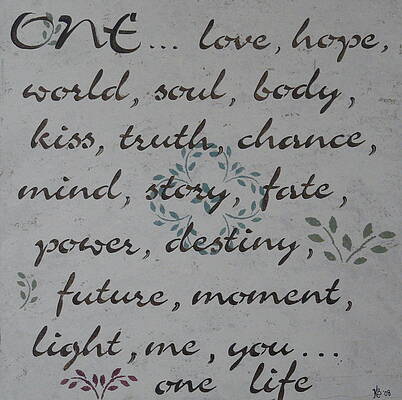 ONE... love, hope,
world, soul, body,
kiss, truth, chance,
mind, story, fate,
power, destiny,
future, moment,
light, me, you...
one life
'08